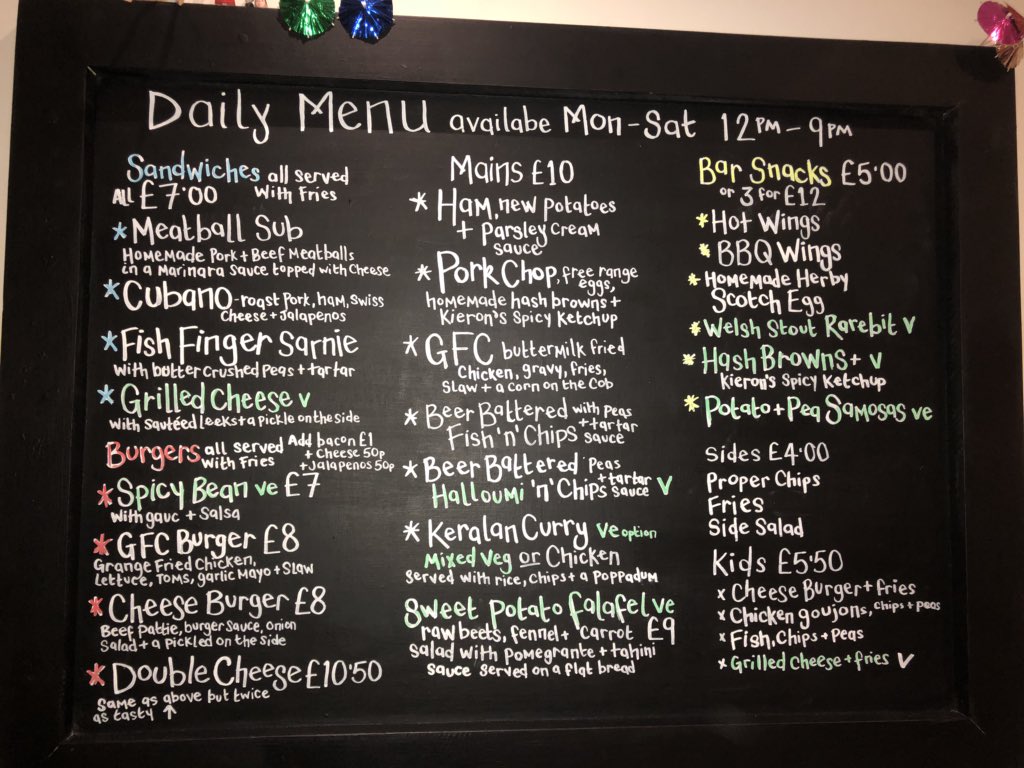 Daily Menu availabe Mon-Sat 12PM - 9PM
Sandwiches all served
All £7.00 with fries
* Meatball Sub
Homemade Pork + Beef Meatballs
in a Marinara Sauce topped with Cheese
* Cubano - roast Pork, ham, Swiss
Cheese + Jalapenos
* Fish Finger Sarnie
with butter crushed Peas + tartar
* Grilled Cheese V
with Sautéed leeks + a pickle on the side
Burgers all served with Fries
Add bacon £1
+ Cheese 50p
+ Jalapenos 50p
* Spicy Bean ve £7
with gauc + Salsa
* GFC Burger £8
Grange Fried Chicken,
Lettuce, Toms, garlic Mayo + Slaw
* Cheese Burger £8
Beef Pattie, burger Sauce, onion
Salad + a Pickled on the side
* Double Cheese £10.50
Same as above but twice
as tasty ↑
Mains £10
* Ham, new potatoes
+ Parsley Cream
Sauce
* Pork Chop, free range
eggs,
homemade hash browns +
Kieron's Spicy Ketchup
* GFC buttermilk fried
Chicken, gravy, fries,
Slaw + a corn on the Cob
* Beer Battered with Peas
+ tartar
Fish 'n' Chips sauce
* Beer Battered Peas
+ tartar
Halloumi 'n' Chips sauce V
* Keralan Curry ve option
Mixed Veg or Chicken
Served with rice, chips + a Poppadum
Sweet Potato falafel ve
raw beets, fennel + carrot £9
Salad with Pomegrante + tahini
Sauce served on a flat bread
Bar Snacks £5.00
or 3 for £12
* Hot Wings
* BBQ Wings
* Homemade Herby
Scotch Egg
* Welsh Stout Rarebit V
* Hash Browns + V
Kieron's Spicy Ketchup
* Potato + Pea Samosas ve
Sides £4.00
Proper Chips
Fries
Side Salad
Kids £5.50
x Cheese Burger + fries
x Chicken goujons, chips + peas
x Fish, Chips + Peas
x Grilled Cheese + fries V